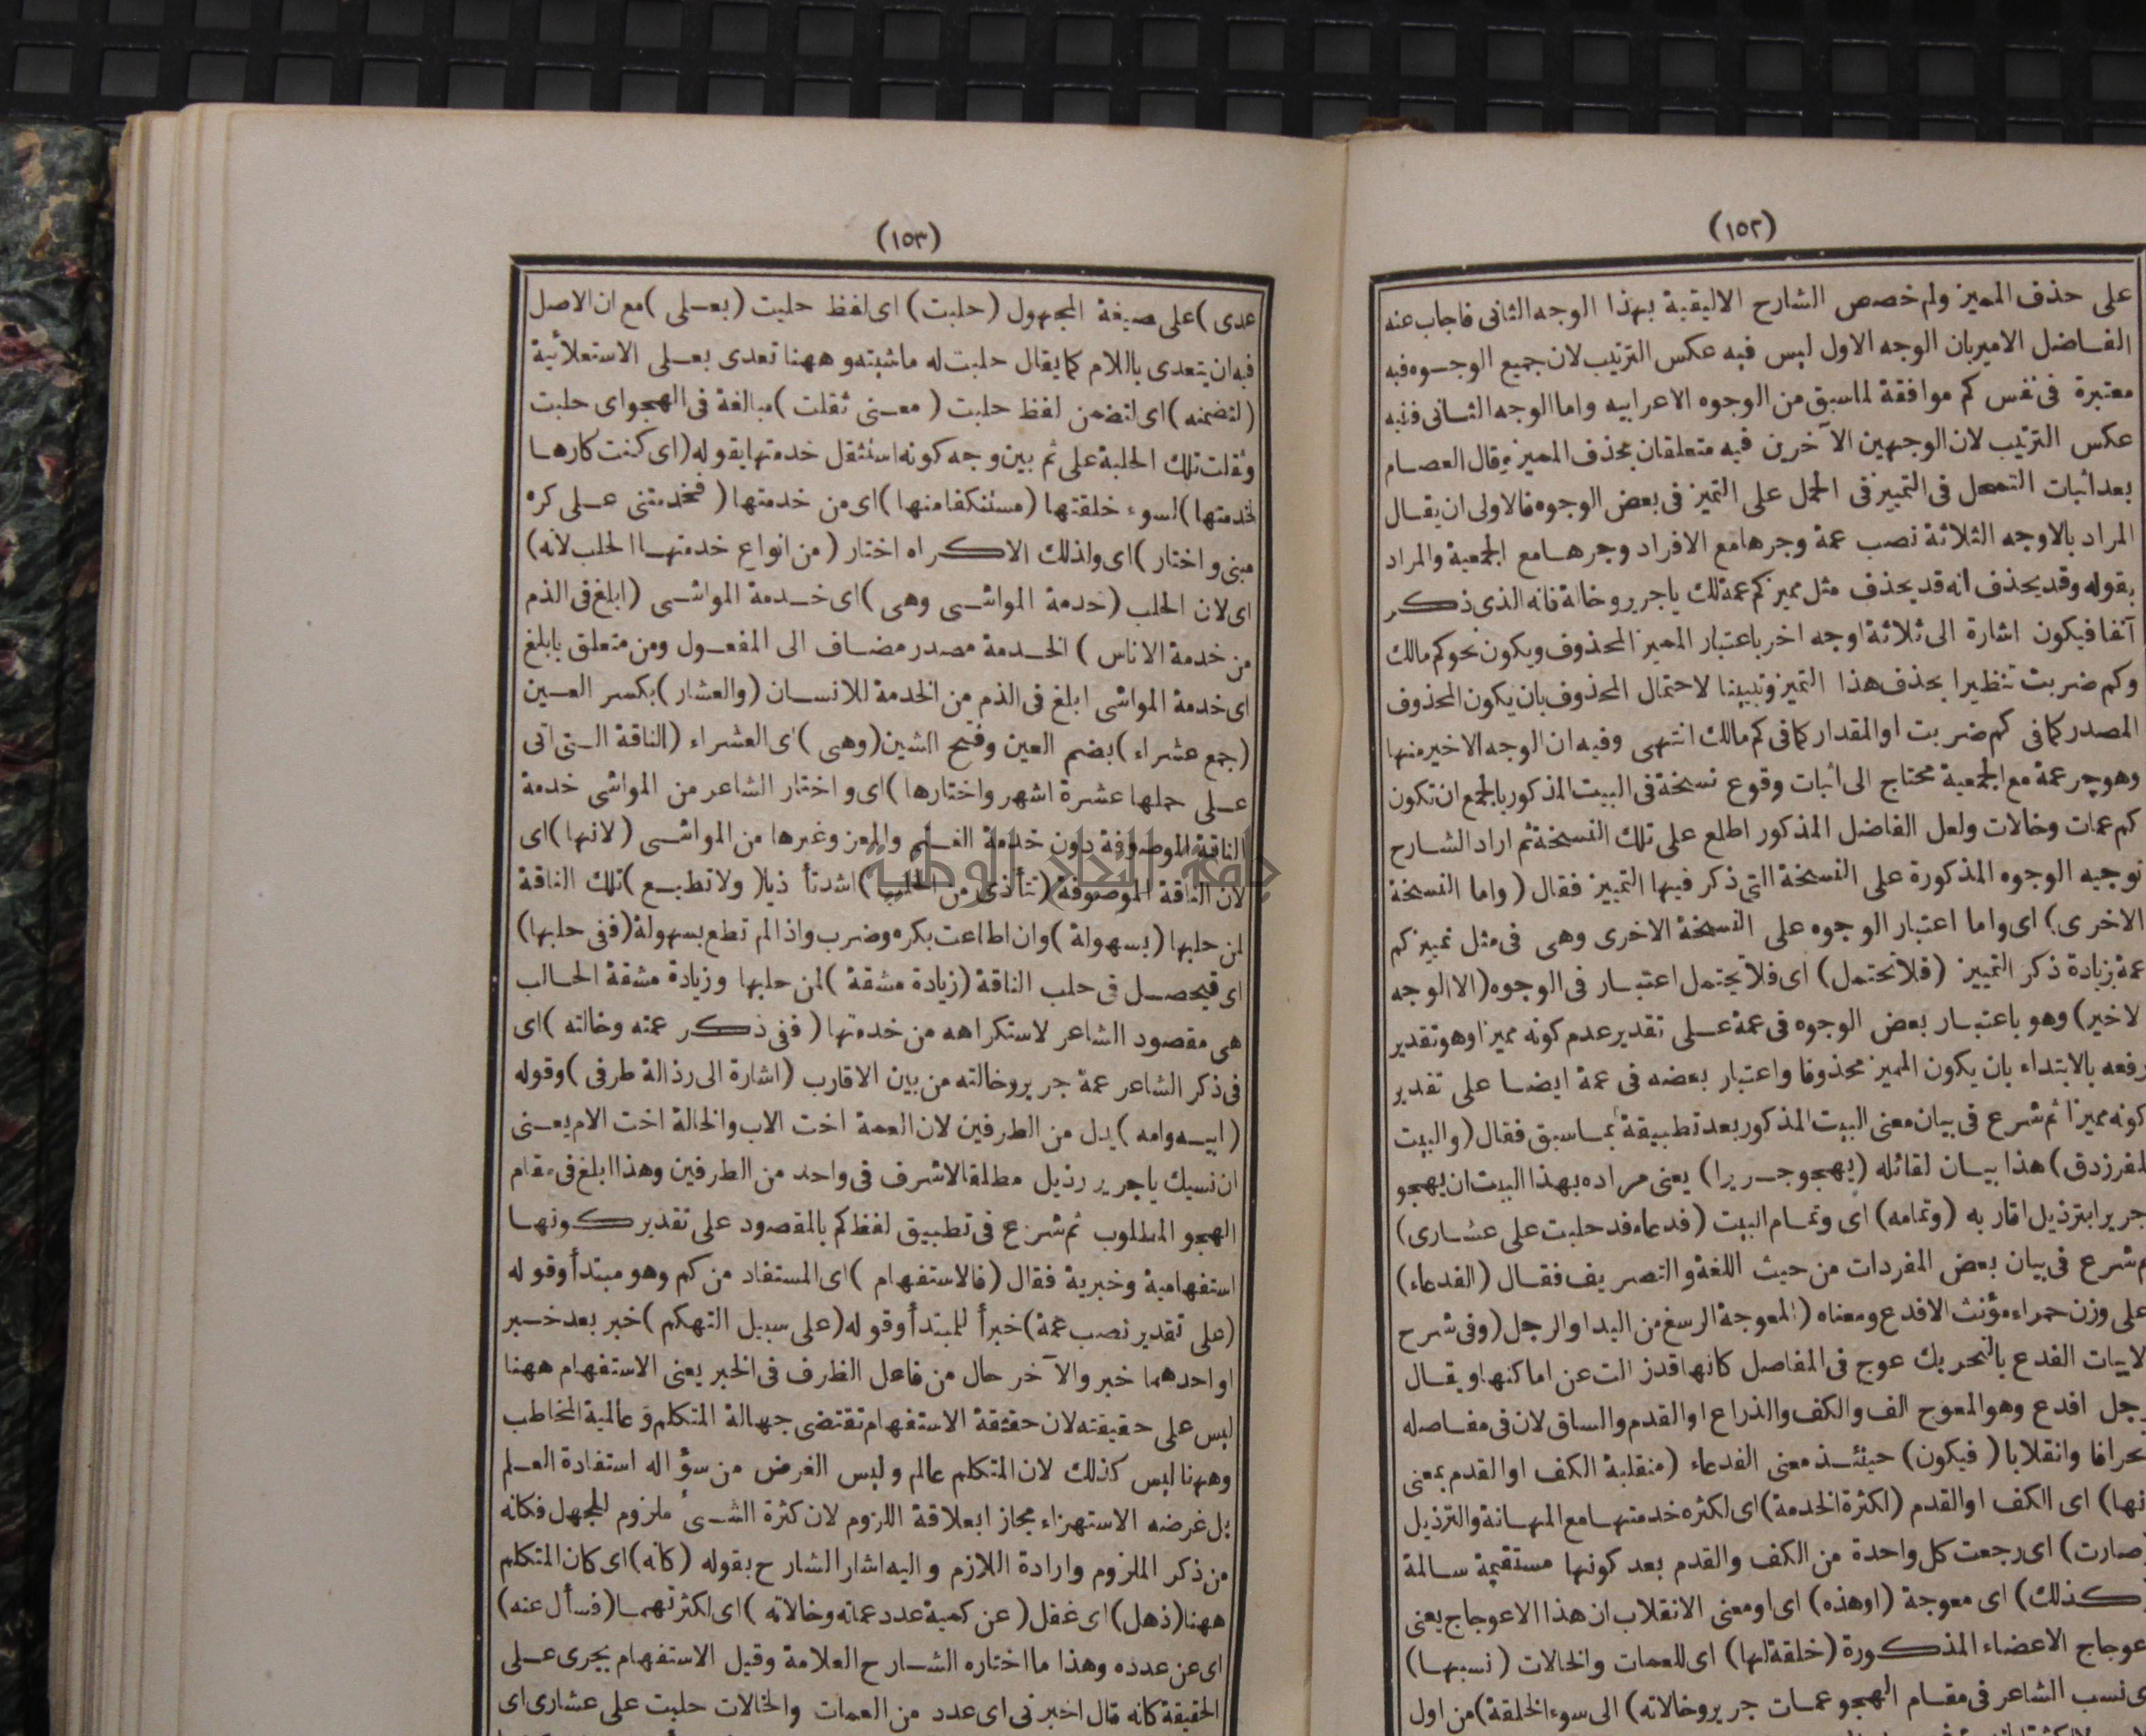 (١٥٢)
على حذف المميز ولم خصص الشارح الاليقية بهذا الوجه الثانى فاجاب عنه
الفاضل الامير بان الوجه الاول ليس فيه عكس الترتيب لان جميع الوجوه فيه
معتبرة فى نفس كم موافقة لما سبق من الوجوه الاعرابيه واما الوجه الثانى ففيه
عكس الترتيب لان الوجهين الآخرين فيه متعلقان بحذف المميز وقال العصام
بعد اثبات التمحل فى التمييز فى الجمل على التميز فى بعض الوجوه فالاولى ان يقال
المراد بالاوجه الثلاثة نصب عمة وجرها مع الافراد وجرها مع الجمعية والمراد
بقوله وقد يحذف انه قد يحذف مثل مميز كم عمة لك يا جرير وخالة فانه الذى ذكر
آنفا فيكون اشارة الى ثلاثة اوجه اخر باعتبار المميز المحذوف ويكون نحو كم مالك
وكم ضربت تنظيرا بحذف هذا التميز وتبيينا لاحتمال المحذوف بان يكون المحذوف
المصدر كما فى كم ضربت او المقدار كما فى كم مالك انتهى وفيه ان الوجه الاخير منها
وهو جر عمة مع الجمعية محتاج الى اثبات وقوع نسخة فى البيت المذكور بالجمع ان تكون
كم عمات وخالات ولعل الفاضل المذكور اطلع على تلك النسخة ثم اراد الشارح
توجيه الوجوه المذكورة على النسخة التى ذكر فيها التمييز فقال (واما النسخة
الاخرى) اى واما اعتبار الوجوه على النسخة الاخرى وهى فى مثل تمييز كم
عمة بزيادة ذكر التمييز (فلا تحتمل) اى فلا يحتمل اعتبار فى الوجوه (الا الوجه
لاخير) وهو باعتبار بعض الوجوه فى عمة على تقدير عدم كونه مميزا وهو تقدير
رفعه بالابتداء بان يكون المميز محذوفا واعتبار بعضه فى عمة ايضا على تقدير
كونه مميزا ثم شرع فى بيان معنى البيت المذكور بعد تطبيقة بما سبق فقال (والبيت
لفرزدق) هذا بيان لقائله (يهجو جريرا) يعنى مراده بهذا البيت ان يهجو
جريرا بترذيل اقاربه (وتمامه) اى وتمام البيت (فدعاء قد حلبت على عشارى)
م شرع فى بيان بعض المفردات من حيث اللغة والتصريف فقال (الفدعاء)
على وزن حمراء مؤنث الافدع ومعناه (المعوجة الرسغ من اليد او الرجل (وفى شرح
لابيات الفدع بالتحريك عوج فى المفاصل كانها قد زالت عن اماكنها ويقال
رجل افدع وهو المعوج الف والكف والذراع او القدم والساق لان فى مفاصله
نحرافا وانقلابا (فيكون) حينئذ معنى الفدعاء (منقلبة الكف او القدم بمعنى
نها) اى الكف او القدم (لكثرة الخدمة) اى لكثره خدمتها مع المهانة والترذيل
(صارت) اى رجعت كل واحدة من الكف والقدم بعد كونها مستقيمة سالمة
(كذلك) اى معوجة (او هذه) اى او معنى الانقلاب ان هذا الاعوجاج يعنى
عوجاج الاعضاء المذكورة (خلقة لها) اى للعمات والخالات (نسبها)
ى نسب الشاعر فى مقام الهجو عمات جرير وخالاته) الى سوء الخلقة) من اول
(١٥٣)
عدى) على صيغة المجهول (حلبت) اى لفظ حلبت (بعلى) مع ان الاصل
فيه ان يتعدى باللام كما يقال حلبت له ماشيته وههنا تعدى بعلى الاستعلائية
(لتضمنه) اى لتضمن لفظ حلبت (معنى ثقلت) مبالغة فى الهجو اى حلبت
وثقلت تلك الحلبة على ثم بين وجه كونه استثقل خدمتها بقوله (اى كنت كارها
لخدمتها) لسوء خلقتها (مستنكفا منها) اى من خدمتها (فخدمتنى على كره
منى واختار) اى ولذلك الاكراه اختار (من انواع خدمتها الحلب لانه)
اى لان الحلب (خدمة المواشى وهى) اى خدمة المواشى (ابلغ فى الذم
من خدمة الاناس) الخدمة مصدر مضاف الى المفعول ومن متعلق بابلغ
اى خدمة المواشى ابلغ فى الذم من الخدمة للانسان (والعشار) بكسر العين
(جمع عشراء) بضم العين وفتح الشين (وهى) اى العشراء (الناقة التى اتى
على حملها عشرة اشهر واختارها) اى واختار الشاعر من المواشى خدمة
الناقة الموصوفة دون خدمة الغنم والمعز وغيرها من المواشى (لانها) اى
لان الناقة الموصوفة (تتأذى من الحلب) اشد تأذيا (ولا تطيع) تلك الناقة
لمن حلبها (بسهولة) وان اطاعت بكره وضرب واذا لم تطع بسهولة (ففى حلبها)
اى فيحصل فى حلب الناقة (زيادة مشقة) لمن حلبها وزيادة مشقة الحالب
هى مقصود الشاعر لاستكراهه من خدمتها (ففى ذكر عمته وخالته) اى
فى ذكر الشاعر عمة جرير وخالته من بين الاقارب (اشارة الى رذالة طرفى) وقوله
(ابيه وامه) بدل من الطرفين لان العمة اخت الاب والخالة اخت الام يعنى
ان نسبك يا جرير رذيل مطلقا لا شرف فى واحد من الطرفين وهذا ابلغ فى مقام
الهجو المطلوب ثم شرع فى تطبيق لفظ كم بالمقصود على تقدير كونها
استفهامية وخبرية فقال (فالاستفهام) اى المستفاد من كم وهو مبتدأ وقوله
(على تقدير نصب عمة) خبرأ للمبتدأ وقوله (على سبيل التهكم) خبر بعد خبر
او احدهما خبر والآخر حال من فاعل الظرف فى الخبر يعنى الاستفهام ههنا
ليس على حقيقته لان حقيقة الاستفهام تقتضى جهالة المتكلم وعالمية المخاطب
وههنا ليس كذلك لان المتكلم عالم وليس الغرض من سؤاله استفادة العلم
بل غرضه الاستهزاء مجازا بعلاقة اللزوم لان كثرة الشىء ملزوم للجهل فكانه
من ذكر الملزوم وارادة اللازم واليه اشار الشارح بقوله (كأنه) اى كان المتكلم
ههنا (ذهل) اى غفل (عن كمية عدد عماته وخالاته) اى لكثرتهما (فسأل عنه)
اى عن عدده وهذا ما اختاره الشارح العلامة وقيل الاستفهام يجرى على
الحقيقة كانه قال اخبرنى اى عدد من العمات والخالات حلبت على عشارى اى